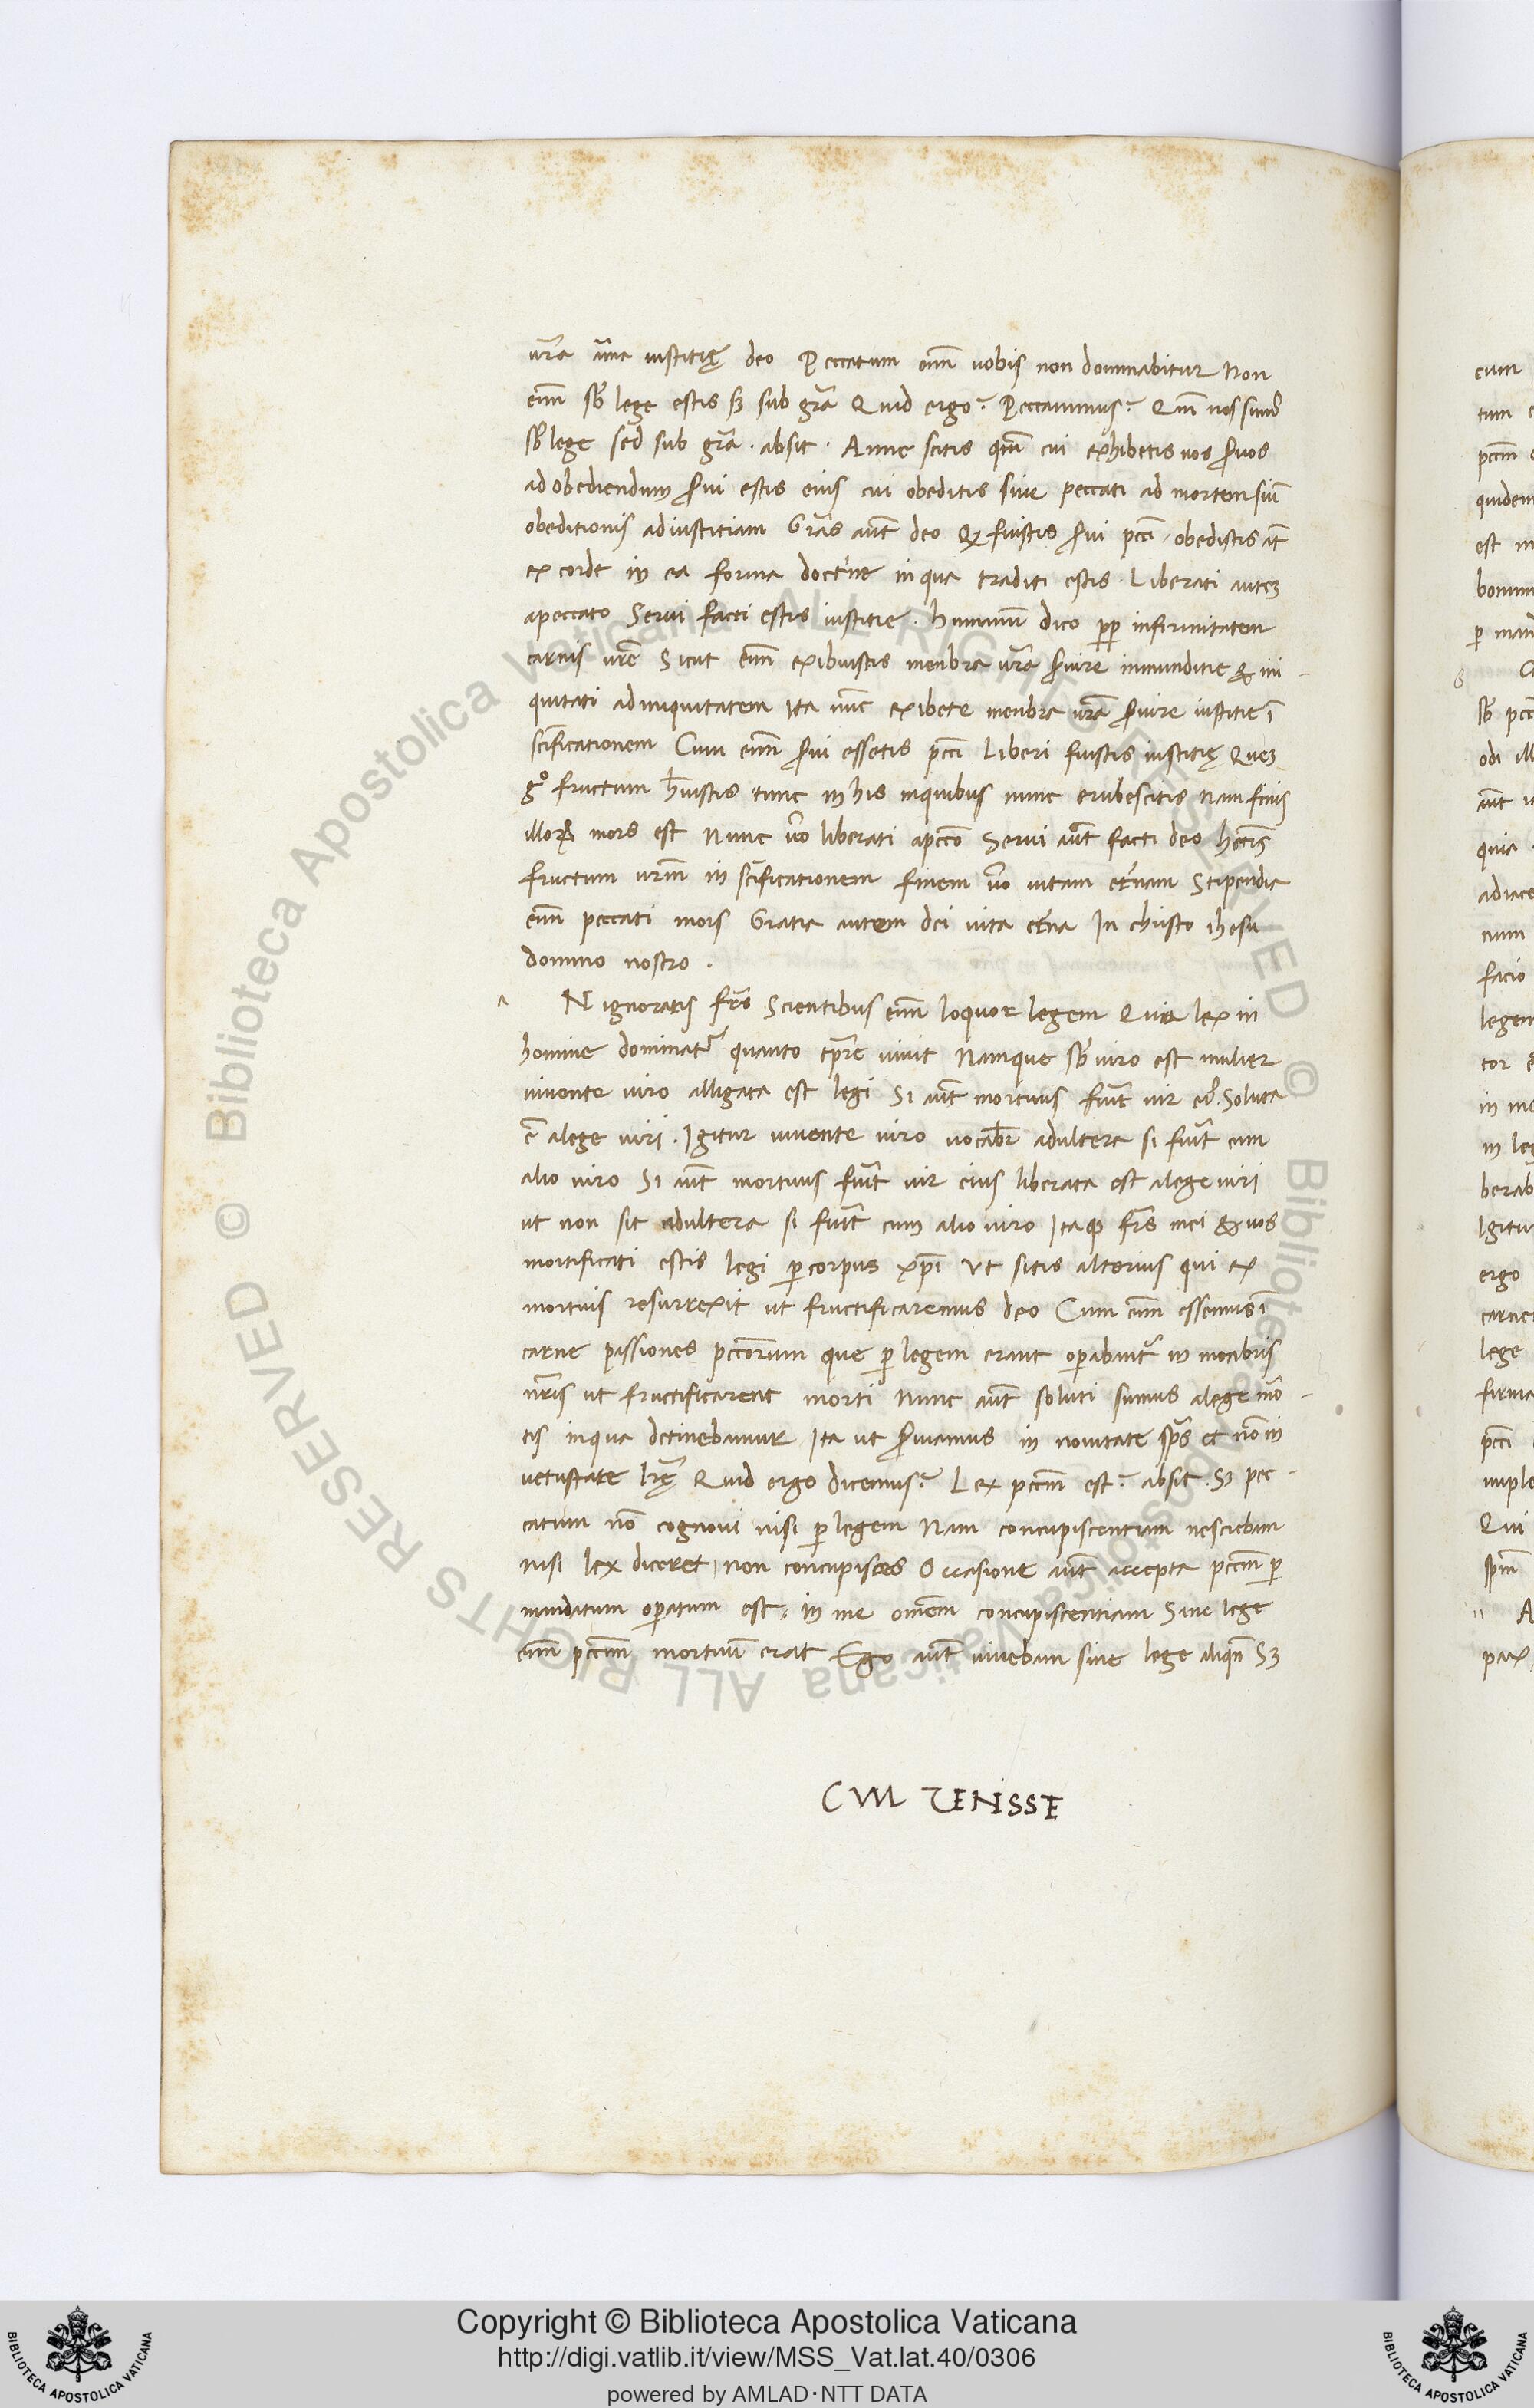 ura̅ ama iustitię deo Peccatum eni̅ uobis non dominabitur Non
eni̅ sb̅ lege estis sʒ sub gr̅a Quid ergo? Peccauimus? Qm̅ nos sum9
sb̅ lege sed sub gr̅a . absit . Anne scitis qm̅ cui exhibetis uos s̅uos
ad obediendum s̅ui estis eius cui obeditis siue peccati ad mortem siu̅
obeditionis ad iustitiam Gr̅as aut̅ deo qꝫ fuistis s̅ui pcc̅i obedistis at̅
ex corde in ea forma doct'ne in qua traditi estis . Liberati auteʒ
apeccato Serui facti estis iustitie . humanu̅ dico pp̅ infirmitatem
carnis ur̅e Sicut eni̅ exibuistis menbra ur̅a s̅uire inmunditie & ini
quitati ad iniquitatem ita nu̅c exibete menbra ur̅a s̅uire iustitie i̅
sc̅ificationem Cum eni̅ s̅ui essetis pcc̅i Liberi fuistis iustitię Queʒ
gº fructum h̅uistis tunc in his inquibus nunc erubescitis Nam finis
illoꝝ mors est Nunc u̅o liberati apcc̅o Serui aut̅ facti deo het̅is
fructum urm̅ in sc̅ificationem finem u̅o uitam et'nam Stipendia
eni̅ peccati mors Gratia autem dei uita et'na In christo ihesu
domino nostro .
N ignoratis fr̅s Scientibus eni̅ loquor legem Quia lex in
homine dominat᷑ quanto tp̅re uiuit Namque sb̅ uiro est mulier
uiuente uiro alligata est legi Si aut̅ mortuus fu̅it uir ei9 . Soluta
e̅ alege uiri . Igitur uiuente uiro uocab᷑ adultera si fu̅it cum
alio uiro Si aut̅ mortuus fu̅it uir eius liberata est alege uiri
ut non sit adultera si fu̅it cum alio uiro Itaqꝫ fr̅s mei & uos
mortificati estis legi ꝑ corpus xp̅i Vt sitis alterius qui ex
mortuis resurrexit ut fructificaremus deo Cum eni̅ essemus i̅
carne passiones pcc̅orum que ꝑ legem erant oꝑabant᷑ in menbris
nr̅is ut fructificarent morti Nunc aut̅ soluti sumus alege mo̅
tis inqua detinebamur Ita ut s̅uiamus in nouitate sp̅s et no̅ in
uetustate lr̅ę Quid ergo dicemus? Lex pccm̅ est? absit . Sʒ pec
catum no̅ cognoui nisi ꝑ legem Nam concupiscentiam nesciebam
nisi lex diceret non concupisces Occasione aut̅ accepta pccm̅ ꝑ
mandatum oꝑatum est in me omn̅em concupiscentiam Sine lege
eni̅ pccm̅ mortuu̅ erat Ego aut̅ uiuebam sine lege aliqn̅ Sʒ
CVM VENISSE
Copyright © Biblioteca Apostolica Vaticana
http://digi.vatlib.it/view/MSS_Vat.lat.40/0306
powered by AMLAD·NTT DATA